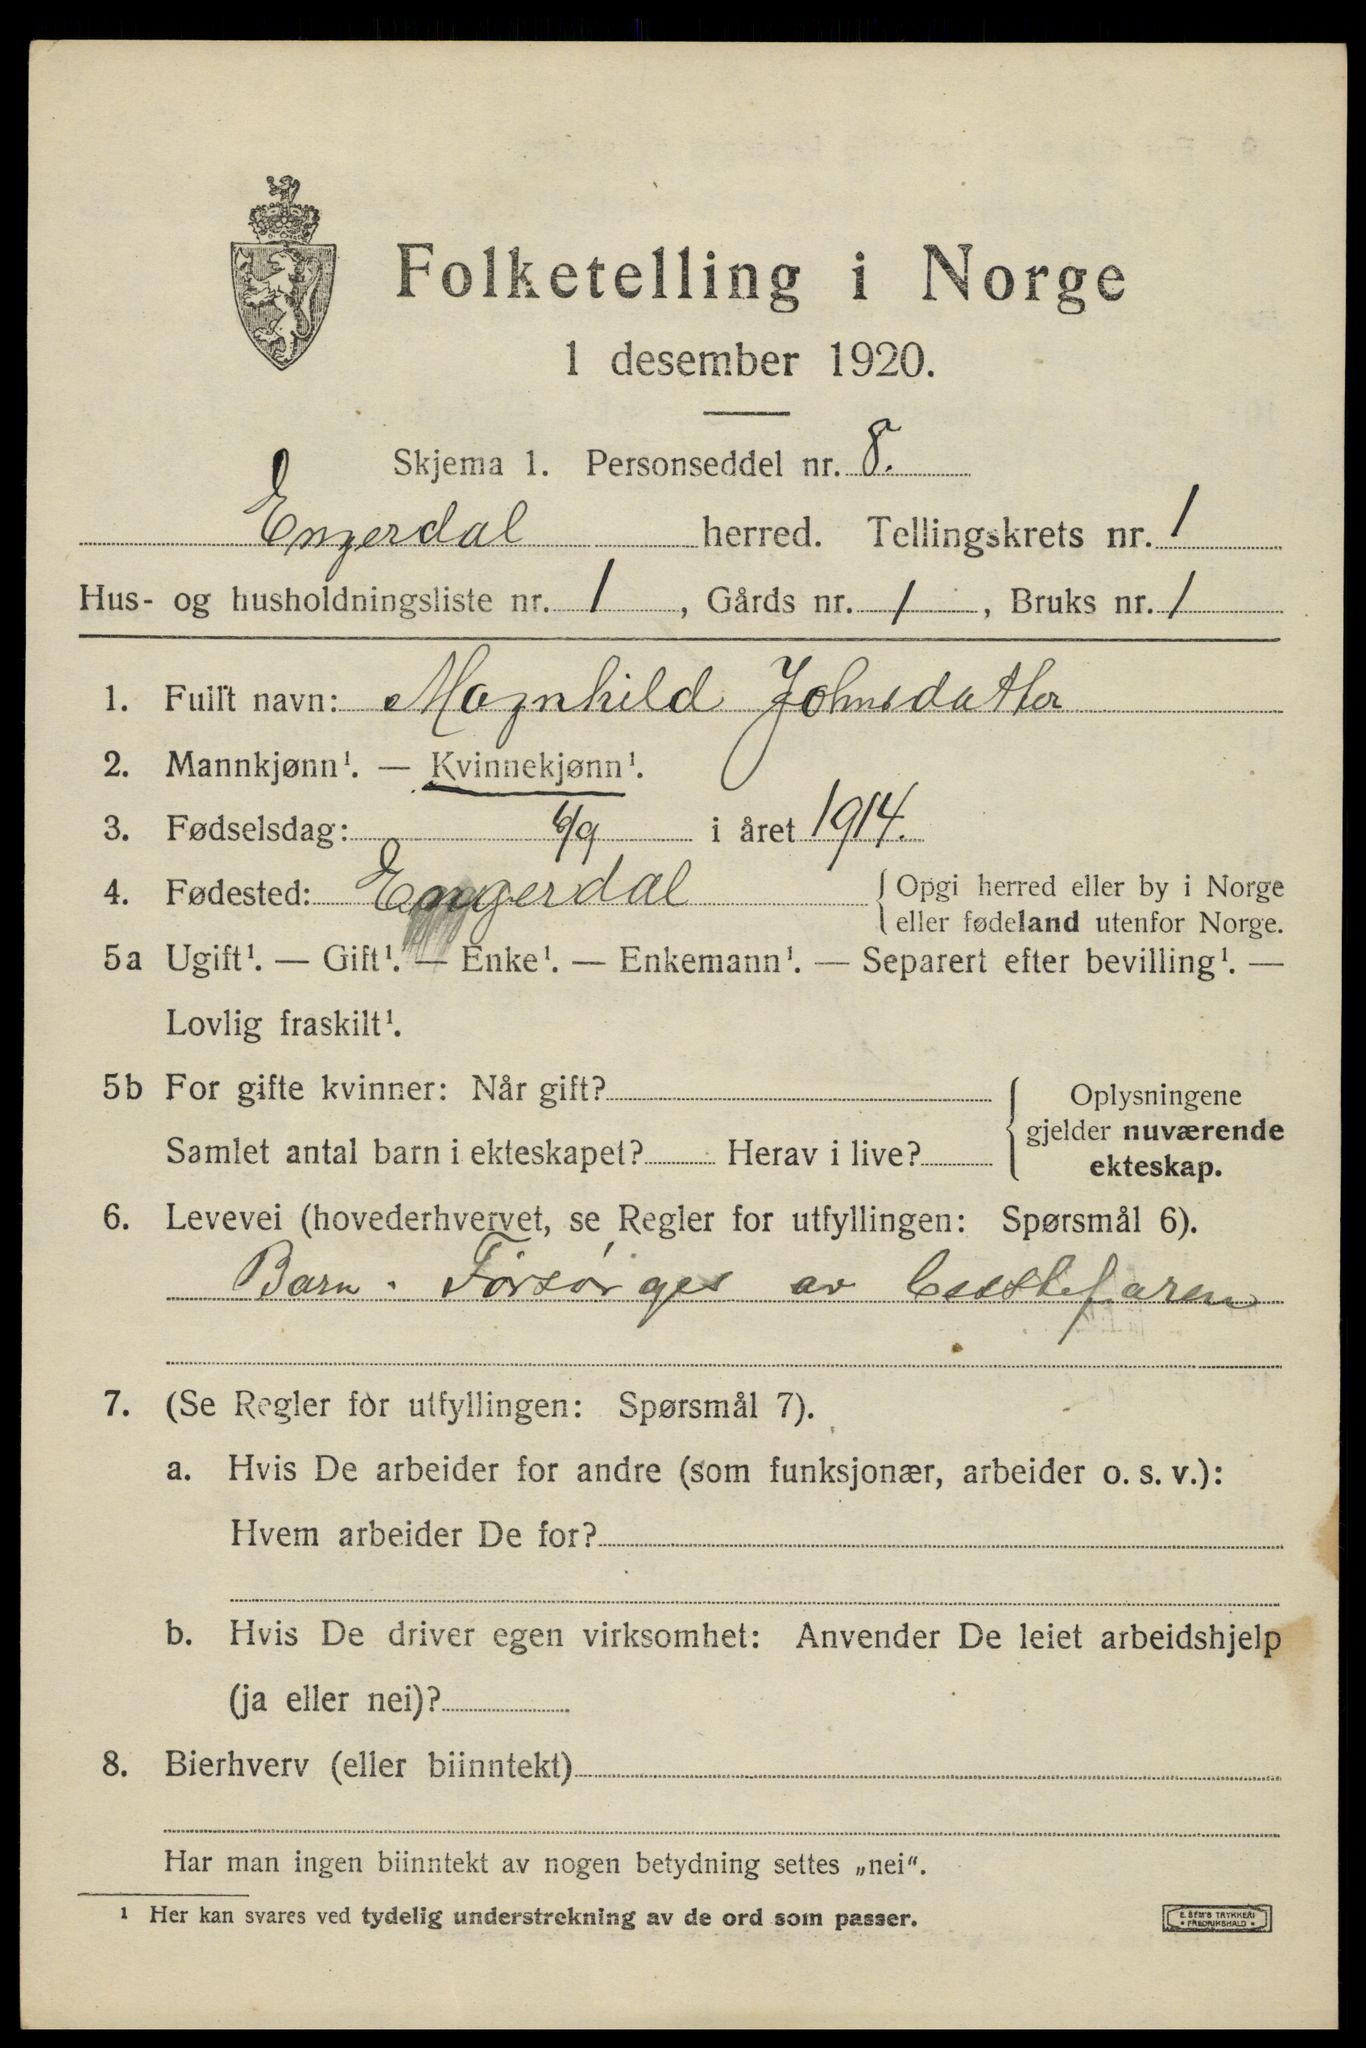 Folketelling i Norge
1 desember 1920.
Skjema 1. Personseddel nr. 8.
Engerdal herred. Tellingskrets nr. 1
Hus- og husholdningsliste nr. 1, Gårds nr. 1, Bruks nr. 1
1. Fullt navn: Magnhild Johnsdatter
2. Mannkjønn¹. — Kvinnekjønn¹.
3. Fødselsdag: 6/9 i året 1914.
4. Fødested: Engerdal { Opgi herred eller by i Norge
eller fødeland utenfor Norge.
5a Ugift¹. — Gift¹. — Enke¹. — Enkemann¹. — Separert efter bevilling¹. —
Lovlig fraskilt¹.
5b For gifte kvinner: Når gift?
Samlet antal barn i ekteskapet? Herav i live?
Oplysningene
gjelder nuværende
ekteskap.
6. Levevei (hovederhvervet, se Regler for utfyllingen: Spørsmål 6).
Barn. Forsørges av
7. (Se Regler for utfyllingen: Spørsmål 7).
a. Hvis De arbeider for andre (som funksjonær, arbeider o. s. v.):
Hvem arbeider De for?
b. Hvis De driver egen virksomhet: Anvender De leiet arbeidshjelp
(ja eller nei)?
8. Bierhverv (eller biinntekt)
Har man ingen biinntekt av nogen betydning settes „nei“.
¹ Her kan svares ved tydelig understrekning av de ord som passer.
E. SEM'S TRYKKERI
• FREDRIKSHALD •